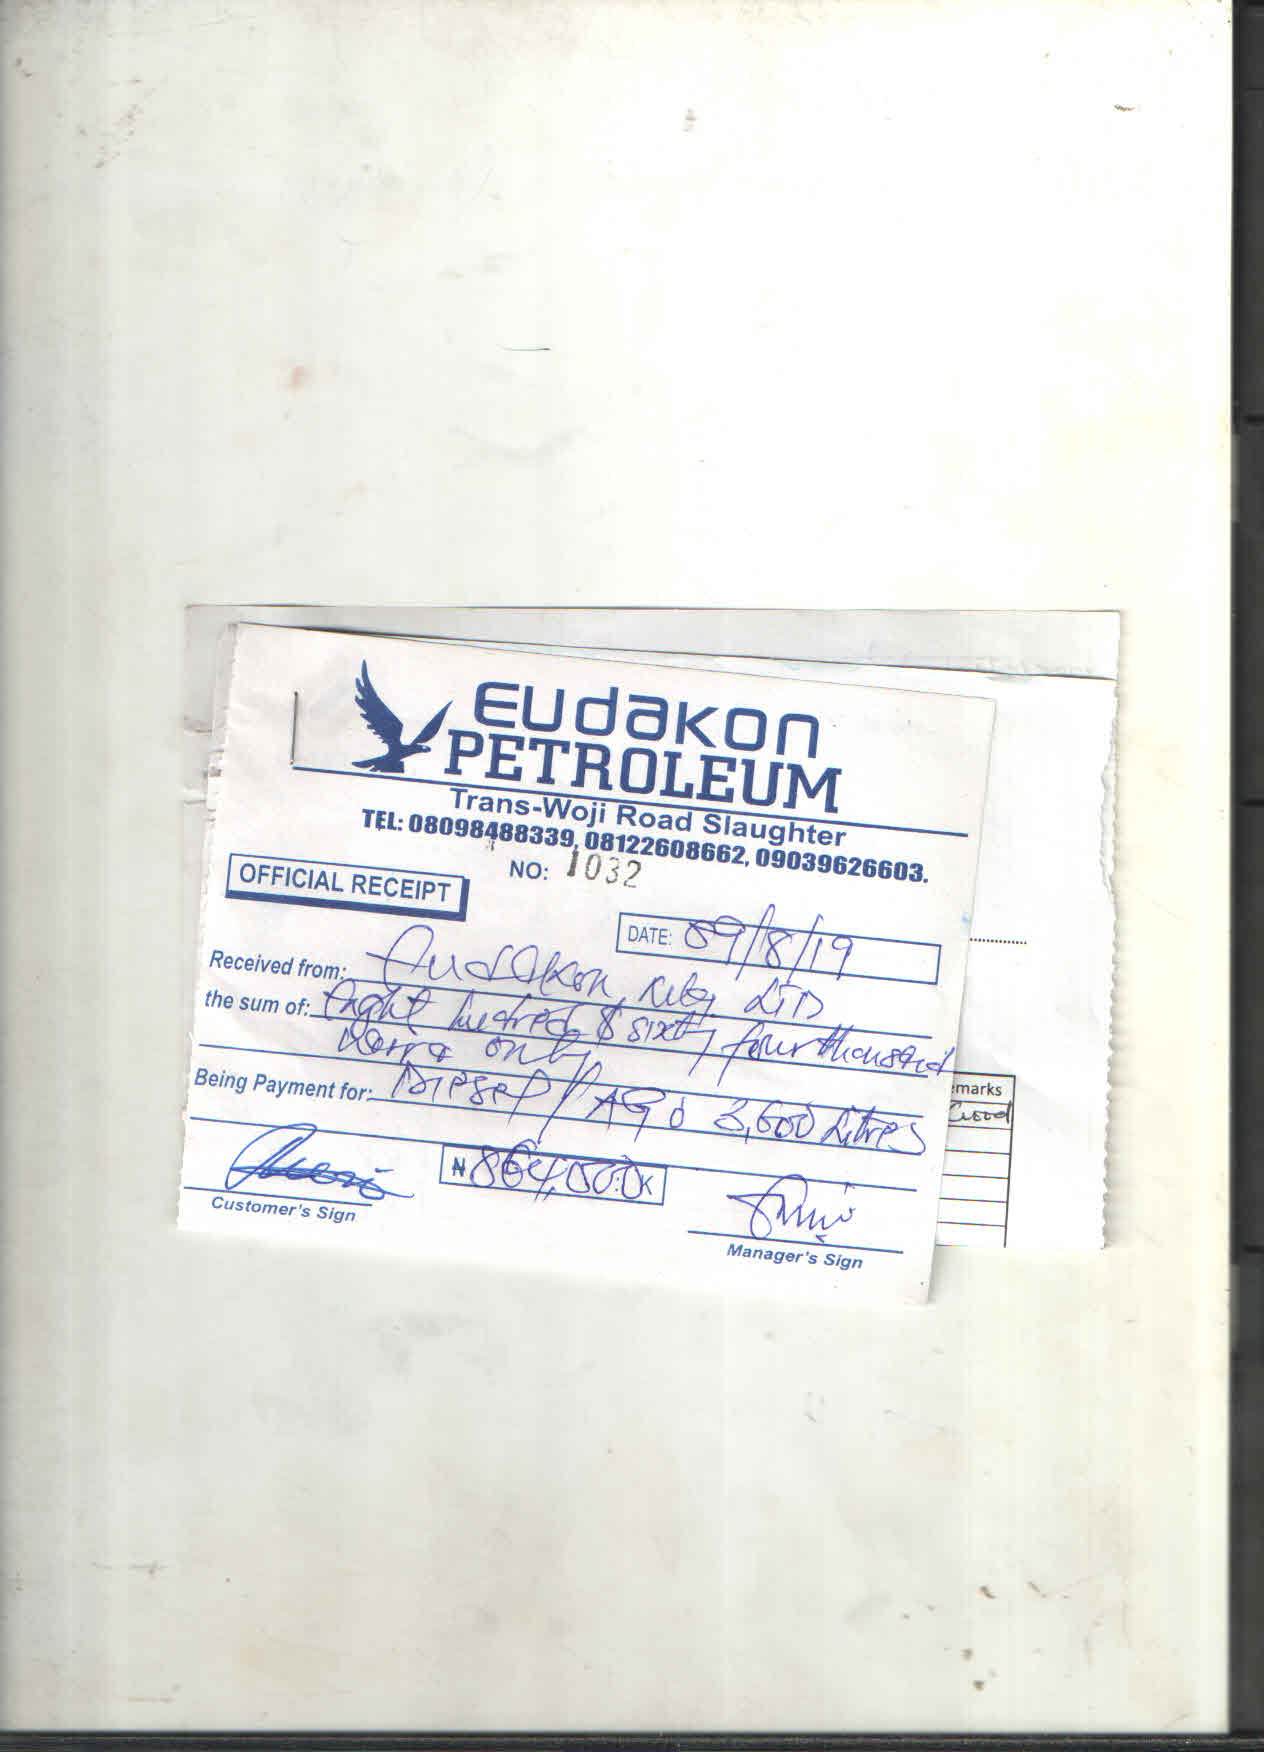 EUdaKON
PETROLEUM
Trans-Woji Road Slaughter
TEL: 08098488339, 08122608662, 09039626603.
NO: 1032
OFFICIAL RECEIPT
DATE: 09/8/19
Received from: Eudakon LTD
the sum of: Eight hundred & sixty four thousand
Naira only
Being Payment for: Diesel / AGO 3,600 Litres
₦ 864,000:0K
Customer's Sign
Manager's Sign
marks
Good